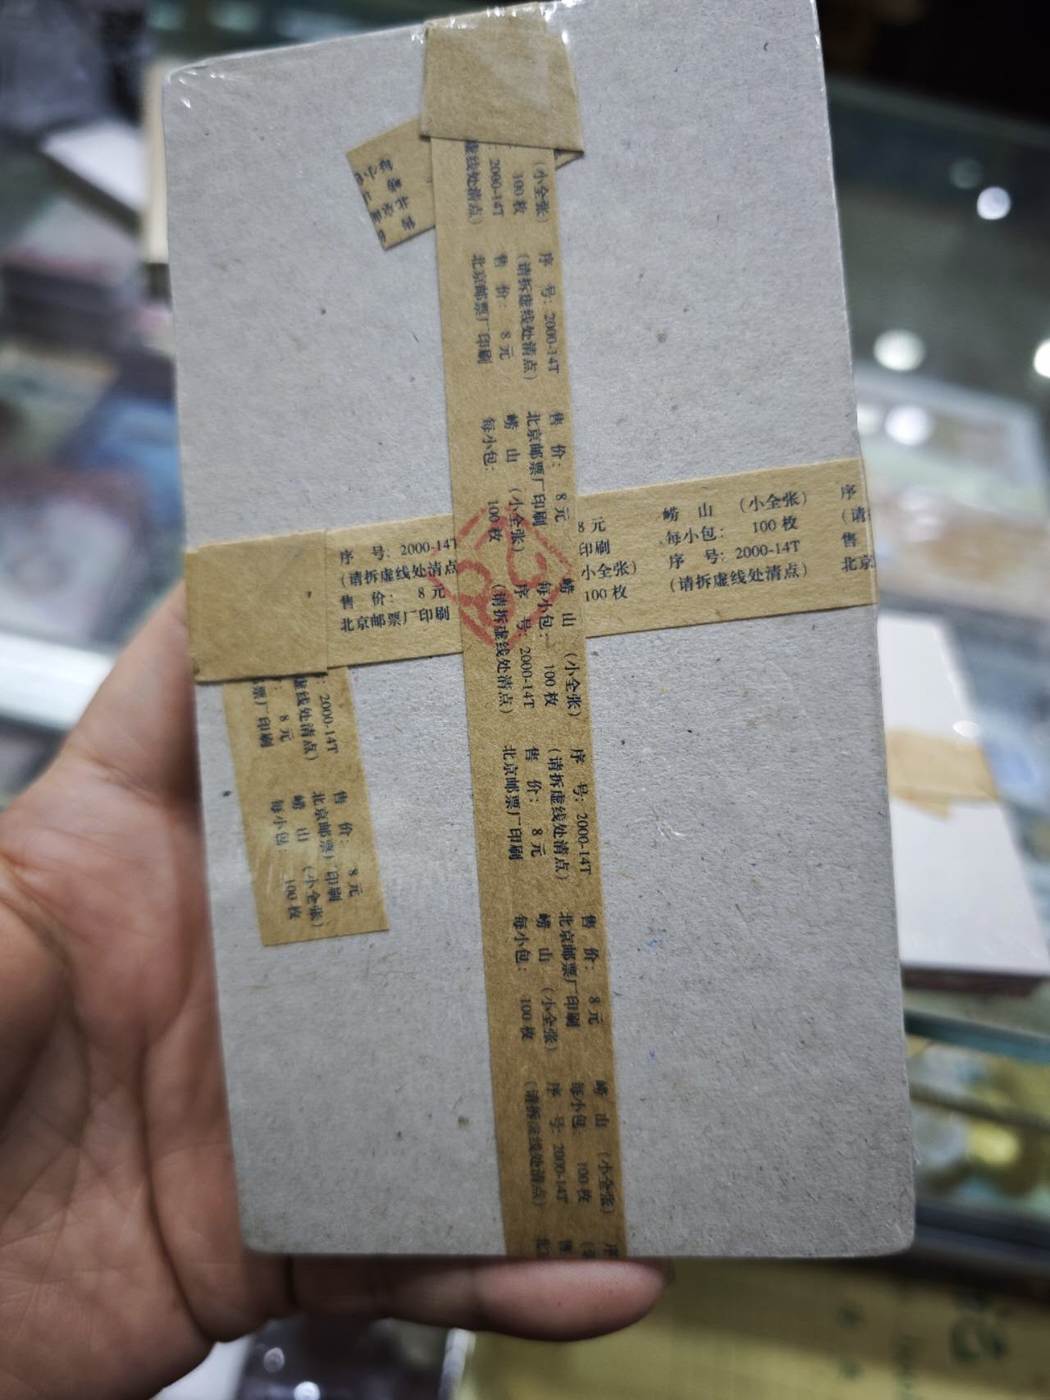 (小全张)
100 枚
2000-14T
虚线处清点)
序 号: 2000-14T
(请拆虚线处清点)
售 价: 8 元
北京邮票厂印刷
售 价: 8 元
北京邮票厂印刷
崂 山 (小全张)
每小包: 100 枚
序 号: 2000-14T
(请拆虚线处清点
售 价: 8 元
北京邮票厂印刷
8 元
印刷
小全张)
100 枚
崂 山 (小全张)
每小包: 100 枚
序 号: 2000-14T
(请拆虚线处清点)
序
(请
售
北京
崂 山 (小全张)
每小包: 100 枚
序 号: 2000-14T
(请拆虚线处清点)
2000-14T
虚线处清点)
8 元
票厂印刷
售 价: 8 元
北京邮票厂印刷
崂 山 (小全张)
每小包 100 枚
序 号: 2000-14T
(请拆虚线处清点)
售 价: 8 元
北京邮票厂印刷
售 价: 8 元
北京邮票厂印刷
崂 山 (小全张)
每小包: 100 枚
崂 山 (小全张)
每小包: 100 枚
序 号: 2000-14T
(请拆虚线处清点)
序
售